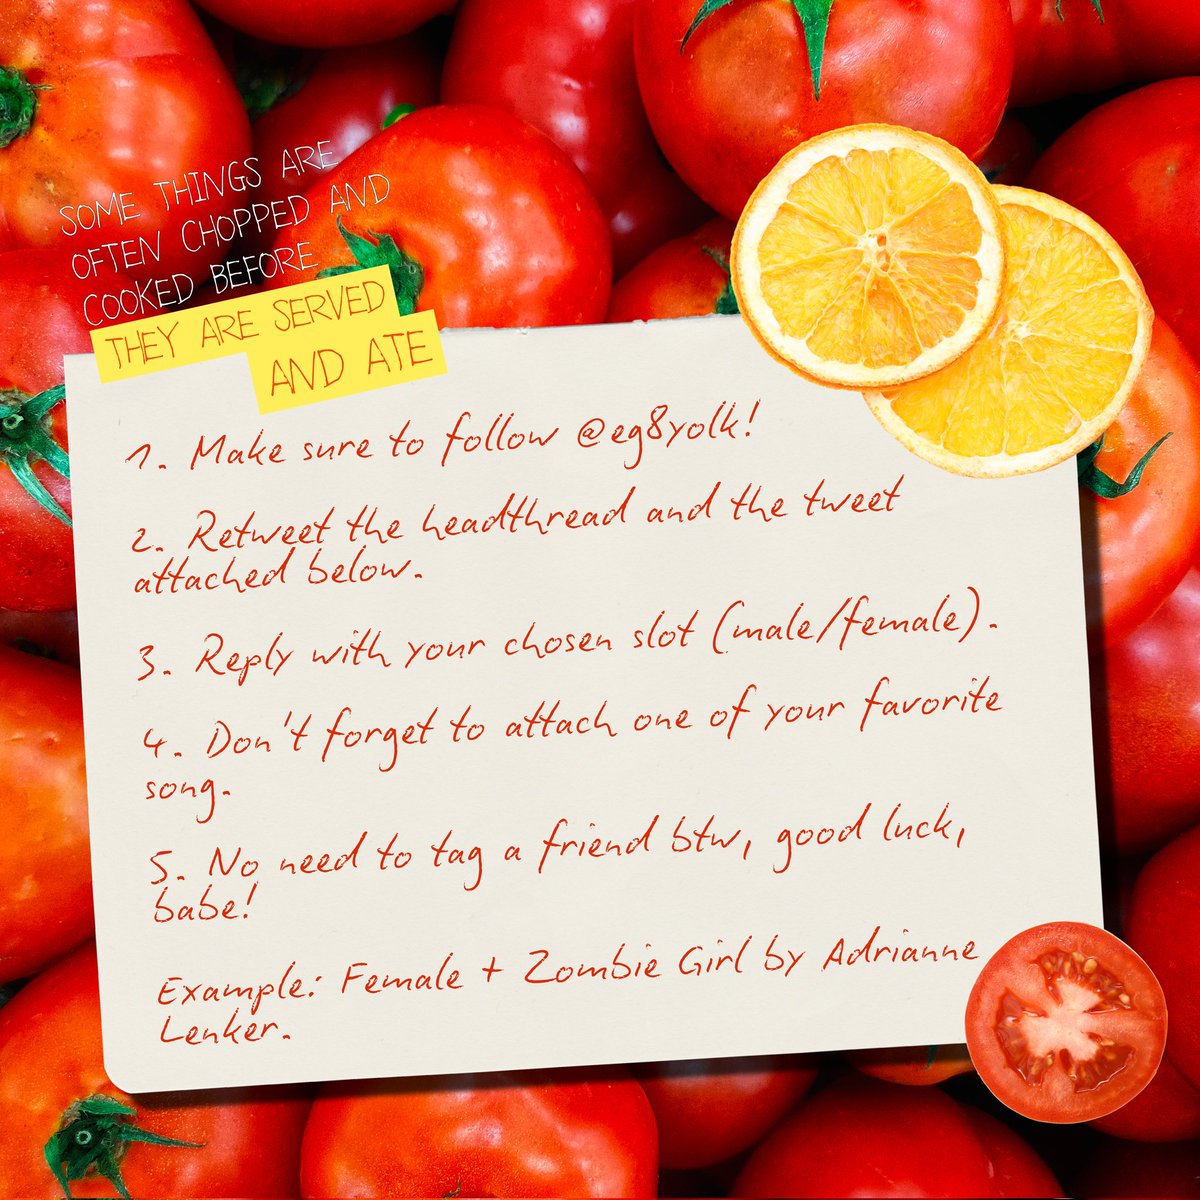 SOME THINGS ARE
OFTEN CHOPPED AND
COOKED BEFORE
THEY ARE SERVED
AND ATE
1. Make sure to follow @eg8yolk!
2. Retweet the headthread and the tweet
attached below.
3. Reply with your chosen slot (male/female).
4. Don't forget to attach one of your favorite
song.
5. No need to tag a friend btw, good luck,
babe!
Example: Female + Zombie Girl by Adrianne
Lenker.